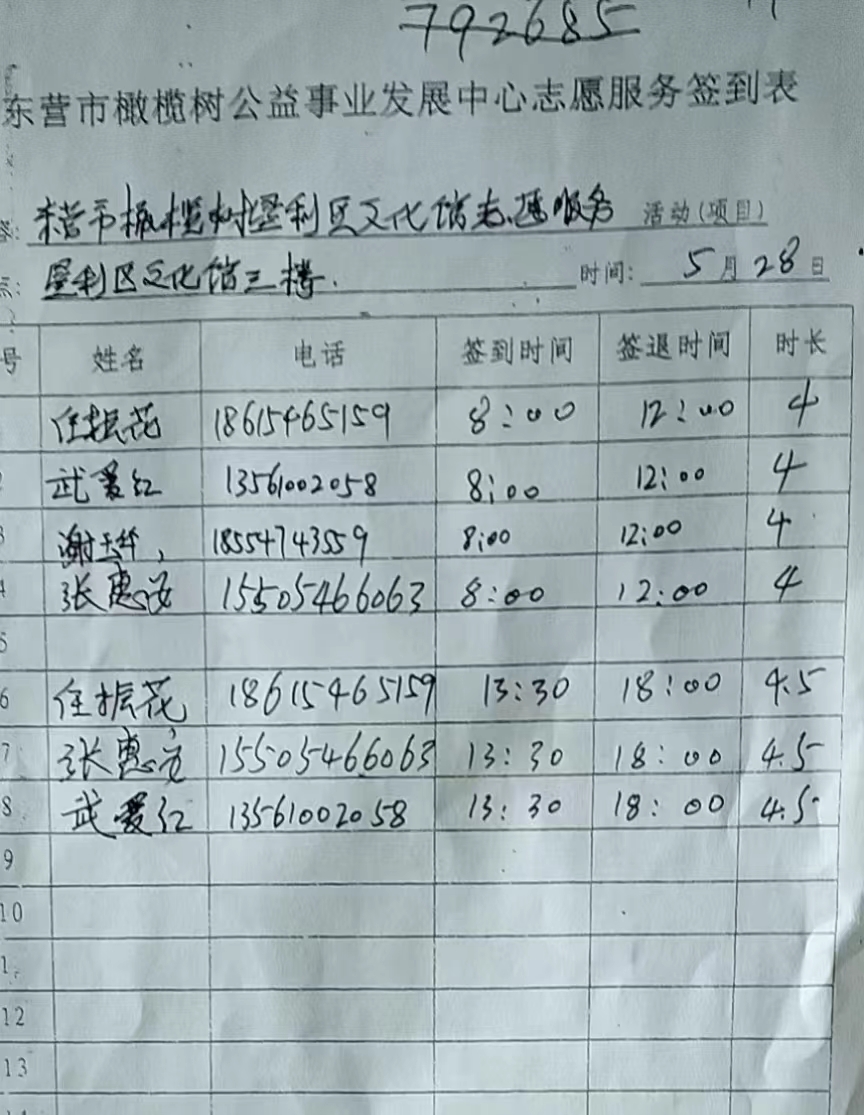 792685
东营市橄榄树公益事业发展中心志愿服务签到表
东营市橄榄树垦利区文化馆志愿服务 活动(项目)
垦利区文化馆三楼. 时间: 5月28日
号 姓名 电话 签到时间 签退时间 时长
任振花 18615465159 8:00 12:00 4
武爱红 13561002058 8:00 12:00 4
3 谢 18554743559 8:00 12:00 4
4 张惠 15505466063 8:00 12:00 4
5
6 任振花 18615465159 13:30 18:00 4.5
7 张惠 15505466063 13:30 18:00 4.5
8 武爱红 13561002058 13:30 18:00 4.5
9
10
12
13